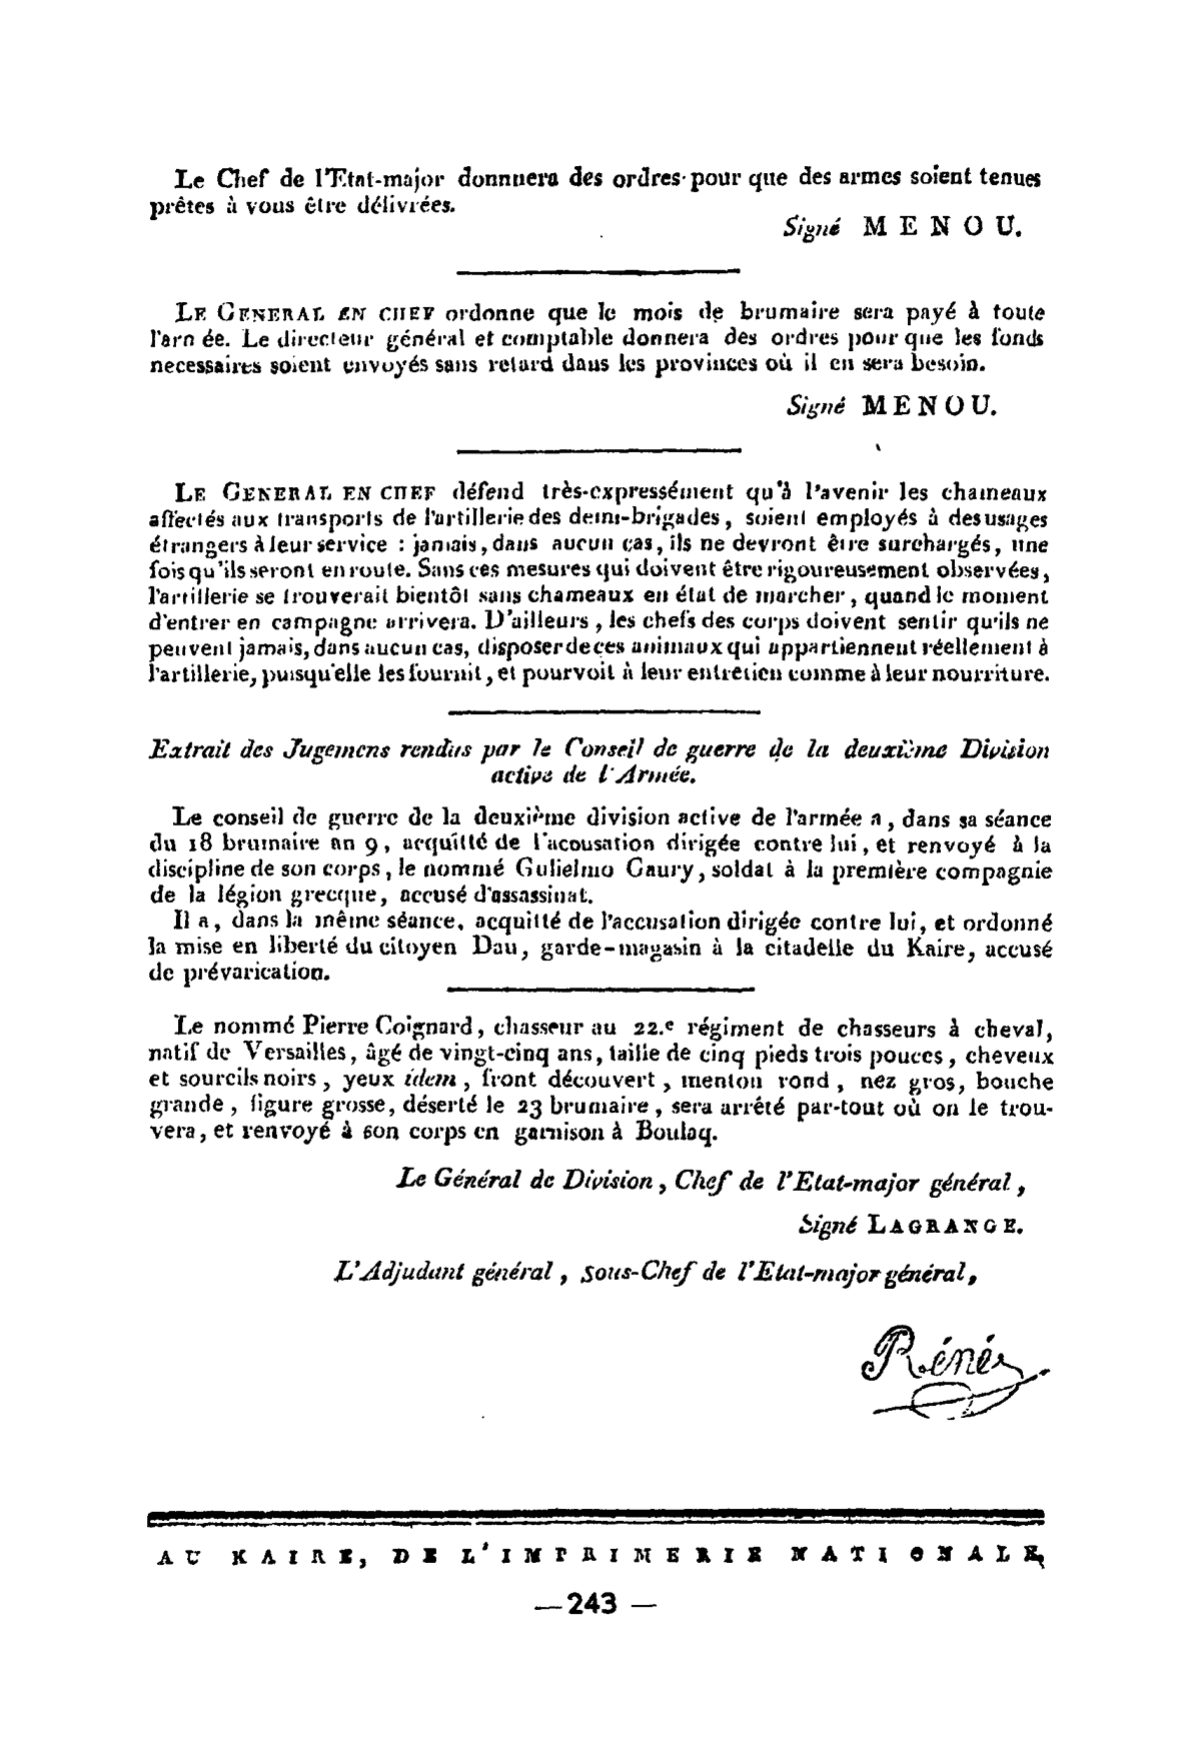 Le Chef de l'Etat-major donnnera des ordres pour que des armes soient tenues
prêtes à vous être délivrées.
Signé MENOU.
LE GENERAL EN CHEF ordonne que le mois de brumaire sera payé à toute
l'arn ée. Le directeur général et comptable donnera des ordres pour que les fonds
necessaires soient envoyés sans retard dans les provinces où il en sera besoin.
Signé MENOU.
LE GENERAL EN CHEF défend très-expressément qu'à l'avenir les chameaux
affectés aux transports de l'artillerie des demi-brigades, soient employés à des usages
étrangers à leur service : jamais, dans aucun cas, ils ne devront être surchargés, une
fois qu'ils seront en route. Sans ces mesures qui doivent être rigoureusement observées,
l'artillerie se trouverait bientôt sans chameaux en état de marcher, quand le moment
d'entrer en campagne arrivera. D'ailleurs, les chefs des corps doivent sentir qu'ils ne
peuvent jamais, dans aucun cas, disposer de ces animaux qui appartiennent réellement à
l'artillerie, puisqu'elle les fournit, et pourvoit à leur entretien comme à leur nourriture.
Extrait des Jugemens rendus par le Conseil de guerre de la deuxième Division
active de l'Armée.
Le conseil de guerre de la deuxième division active de l'armée a, dans sa séance
du 18 brumaire an 9, acquitté de l'acousation dirigée contre lui, et renvoyé à la
discipline de son corps, le nommé Gulielmo Caury, soldat à la première compagnie
de la légion grecque, accusé d'assassinat.
Il a, dans la même séance, acquitté de l'accusation dirigée contre lui, et ordonné
la mise en liberté du citoyen Dau, garde-magasin à la citadelle du Kaire, accusé
de prévarication.
Le nommé Pierre Coignard, chasseur au 22.e régiment de chasseurs à cheval,
natif de Versailles, âgé de vingt-cinq ans, taille de cinq pieds trois pouces, cheveux
et sourcils noirs, yeux idem, front découvert, menton rond, nez gros, bouche
grande, figure grosse, déserté le 23 brumaire, sera arrêté par-tout où on le trou-
vera, et renvoyé à son corps en garnison à Boulaq.
Le Général de Division, Chef de l'Etat-major général,
Signé LAGRANGE.
L'Adjudant général, sous-Chef de l'Etat-major général,
Réné
AU KAIRE, DE L'IMPRIMERIE NATIONALE,
— 243 —